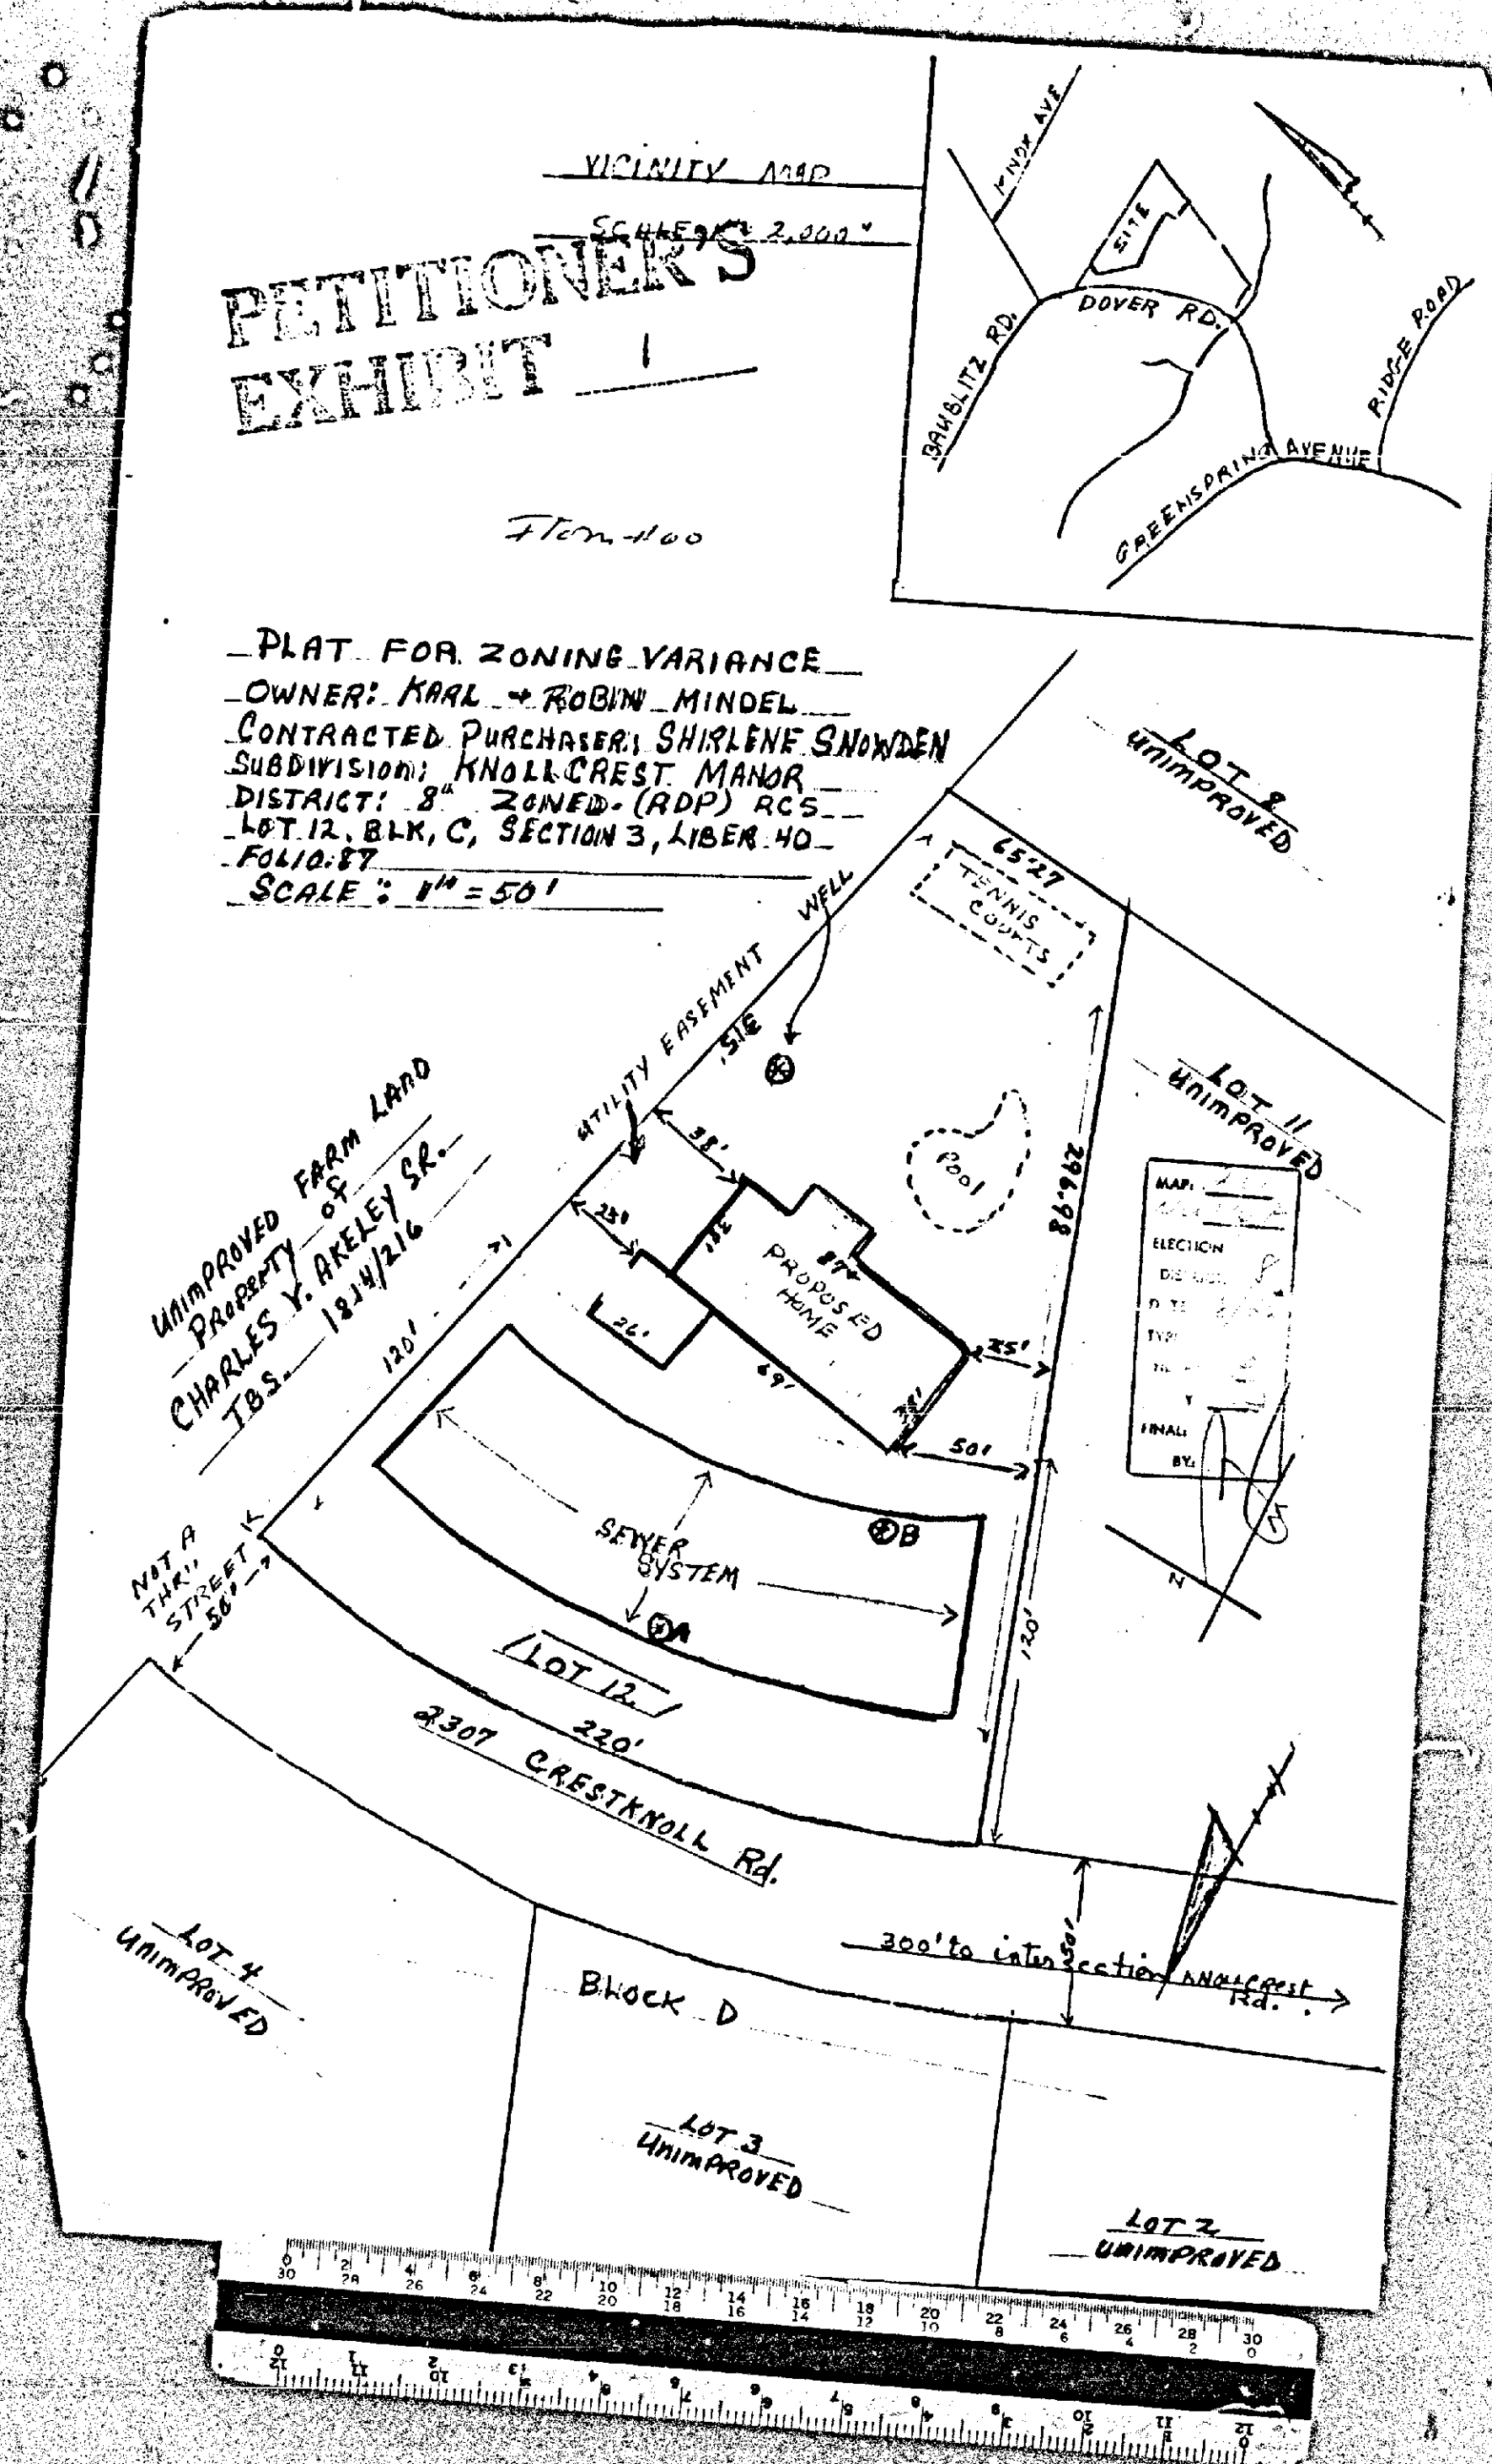 VICINITY MAP
SCALE 1" = 2,000"
PETITIONER'S
EXHIBIT 1
KNOX AVE
SITE
DOVER RD.
BAUBLITZ RD.
RIDGE ROAD
GREENSPRING AVENUE
PLAT FOR ZONING VARIANCE
OWNER: KARL + ROBIN MINDEL
CONTRACTED PURCHASER: SHIRLENE SNOWDEN
SUBDIVISION: KNOLLCREST MANOR
DISTRICT: 8th ZONED-(RDP) RC5
LOT 12, BLK, C, SECTION 3, LIBER 40
FOLIO:87
SCALE: 1" = 50'
LOT 8
UNIMPROVED
65.27
TENNIS
COURTS
WELL
UTILITY EASEMENT
315'
38'
23'
38'
POOL
296.98
LOT 11
UNIMPROVED
MAP:
ELECTION
DISTRICT 8
FINAL:
BY:
N
UNIMPROVED FARM LAND
PROPERTY of
CHARLES Y. AKELEY SR.
120'
87'
PROPOSED
HOME
26'
69'
25'
50'
SEWER
SYSTEM
B
A
120'
NOT A
THRU
STREET
50'
LOT 12
220'
2307 CRESTKNOLL Rd.
300' to intersection KNOLLCREST
Rd.
50'
LOT 4
UNIMPROVED
BLOCK D
LOT 3
UNIMPROVED
LOT 2
UNIMPROVED
0 2 4 6 8 10 12 14 16 18 20 22 24 26 28 30
30 28 26 24 22 20 18 16 14 12 10 8 6 4 2 0